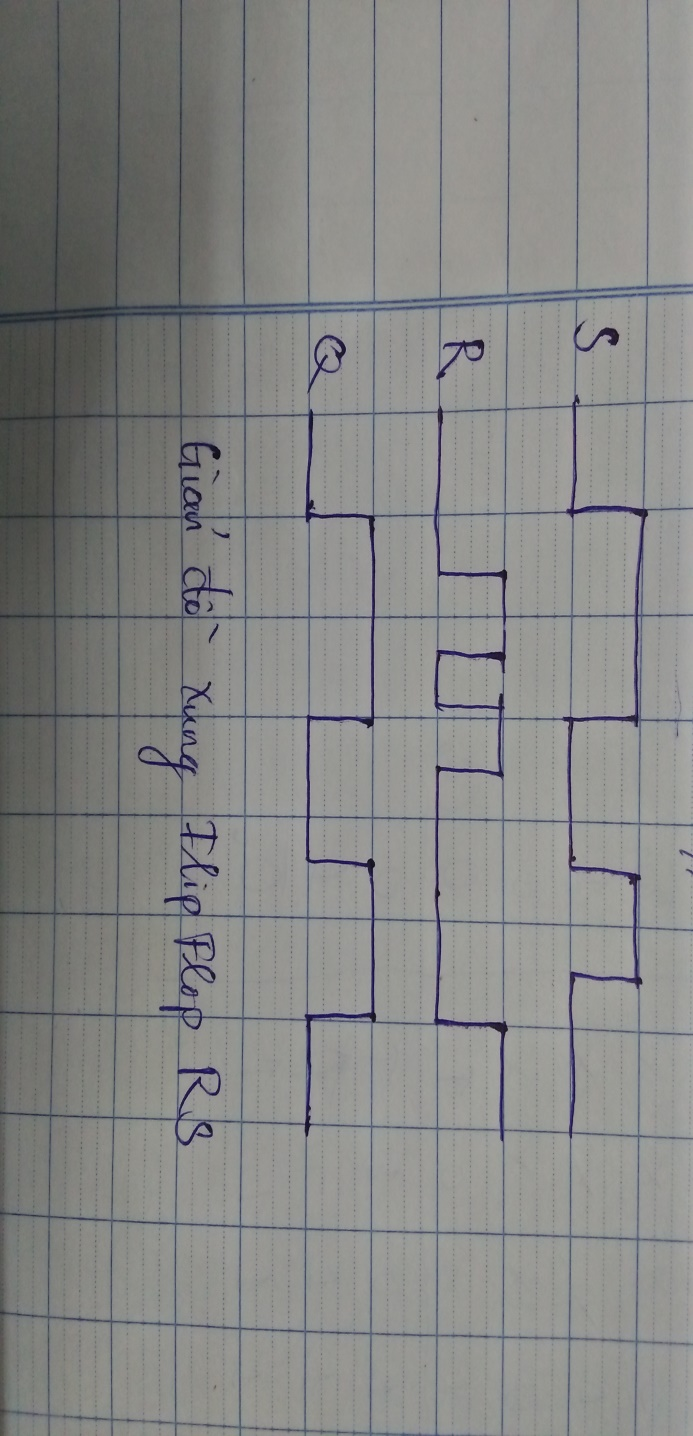 S
R
Q
Giản đồ xung Flip Flop RS